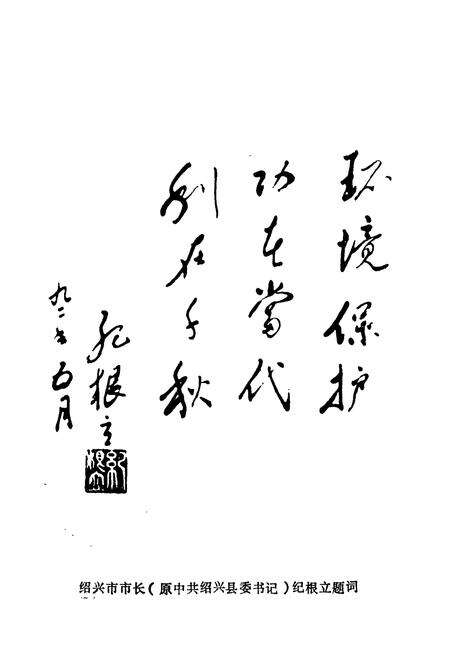 环境保护
功在當代
利在千秋
纪根立
九二年五月
绍兴市市长（原中共绍兴县委书记）纪根立题词